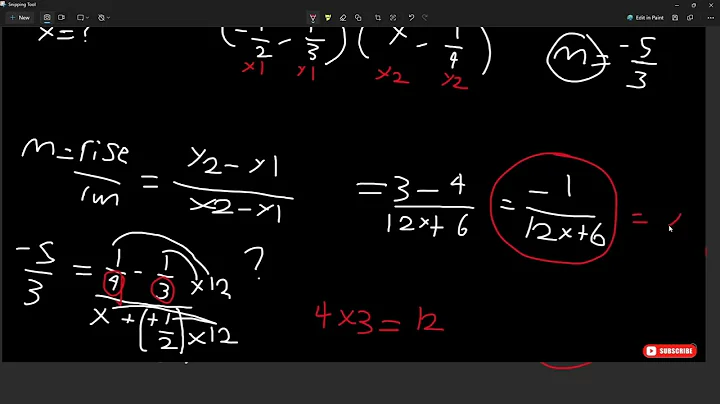 Snipping Tool
+ New
Edit in Paint
x = ?
(-1/2 - 1/3) (x - 1/4)
m = -5/3
x1 x1 x2 y2
m = rise/run = y2 - y1/x2 - x1
= 3 - 4/12x + 6 = -1/12x+6 =
-5/3 = 1/4 - 1/3 x12 ?
x + (+1/2) x12
4 x 3 = 12
SUBSCRIBE